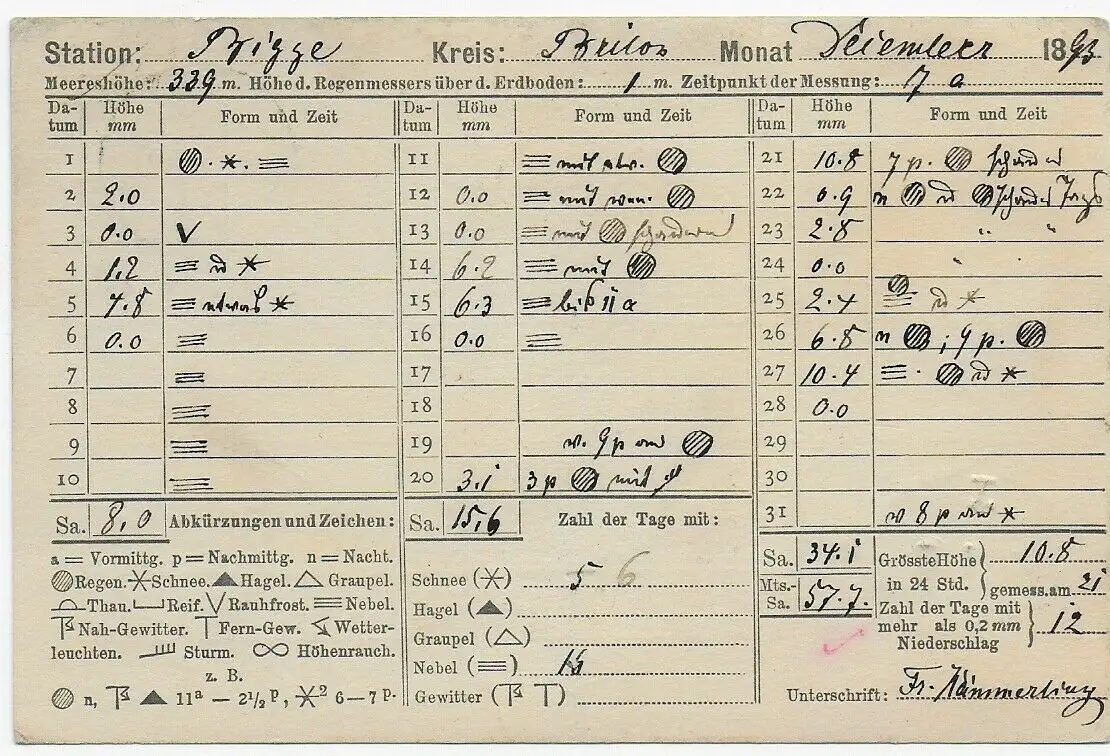 Station: Bigge Kreis: Brilon Monat Dezember 1893
Meereshöhe: 339 m. Höhe d. Regenmessers über d. Erdboden: 1 m. Zeitpunkt der Messung: 7 a
Da-tum Höhe mm Form und Zeit
1 . * . ≡
2 2.0
3 0.0 V
4 1.2 ≡ *
5 4.8 ≡ etwas *
6 0.0 ≡
7 ≡
8 ≡
9 ≡
10 ≡
Sa. 8,0
Da-tum Höhe mm Form und Zeit
11 ≡ mit
12 0.0 ≡ mit
13 0.0 ≡ mit
14 6.2 ≡ mit
15 6.3 ≡ bis 11 a
16 0.0 ≡
17
18
19 9 p
20 3.1 3 p mit
Sa. 15,6
Da-tum Höhe mm Form und Zeit
21 10.8 7 p.
22 0.9 n
23 2.8 " "
24 0.0 " "
25 2.4 ≡ *
26 6.8 n ; 9 p.
27 10.4 ≡ . *
28 0.0
29
30
31 8 p *
Sa. 34.1
Mts.-Sa. 57.7.
Abkürzungen und Zeichen:
a = Vormittg. p = Nachmittg. n = Nacht.
Regen. Schnee. Hagel. Graupel.
Thau. Reif. Rauhfrost. Nebel.
Nah-Gewitter. Fern-Gew. Wetter-
leuchten. Sturm. Höhenrauch.
z. B.
n, 11ª — 2½ p, *² 6—7 p.
Zahl der Tage mit:
Schnee (*) 5 6
Hagel (▲)
Graupel (△)
Nebel (≡)
Gewitter
Grösste Höhe
in 24 Std. 10.8
gemess. am 21
Zahl der Tage mit
mehr als 0,2 mm
Niederschlag 12
Unterschrift: Fr. Hämmerling